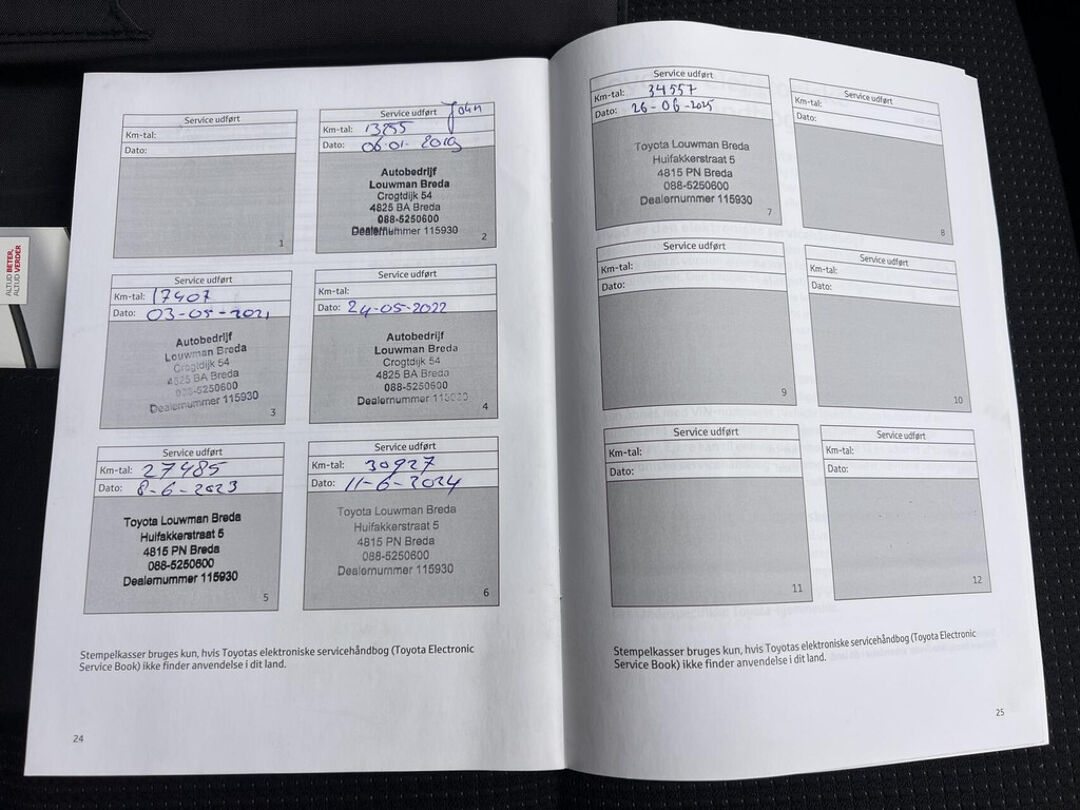 ALTIJD BETER,
ALTIJD VERDER
Service udført
Km-tal:
Dato:
1
Service udført John
Km-tal: 13255
Dato: 06-01-2019
Autobedrijf
Louwman Breda
Crogtdijk 54
4825 BA Breda
088-5250600
Dealernummer 115930
2
Service udført
Km-tal: 17407
Dato: 03-05-2021
Autobedrijf
Louwman Breda
Crogtdijk 54
4825 BA Breda
088-5250600
Dealernummer 115930
3
Service udført
Km-tal:
Dato: 24-05-2022
Autobedrijf
Louwman Breda
Crogtdijk 54
4825 BA Breda
088-5250600
Dealernummer 115930
4
Service udført
Km-tal: 27485
Dato: 8-6-2023
Toyota Louwman Breda
Huifakkerstraat 5
4815 PN Breda
088-5250600
Dealernummer 115930
5
Service udført
Km-tal: 30927
Dato: 11-6-2024
Toyota Louwman Breda
Huifakkerstraat 5
4815 PN Breda
088-5250600
Dealernummer 115930
6
Stempelkasser bruges kun, hvis Toyotas elektroniske servicehåndbog (Toyota Electronic
Service Book) ikke finder anvendelse i dit land.
24
Service udført
Km-tal: 34557
Dato: 26-06-2025
Toyota Louwman Breda
Huifakkerstraat 5
4815 PN Breda
088-5250600
Dealernummer 115930
7
Service udført
Km-tal:
Dato:
8
Service udført
Km-tal:
Dato:
9
Service udført
Km-tal:
Dato:
10
Service udført
Km-tal:
Dato:
11
Service udført
Km-tal:
Dato:
12
Stempelkasser bruges kun, hvis Toyotas elektroniske servicehåndbog (Toyota Electronic
Service Book) ikke finder anvendelse i dit land.
25